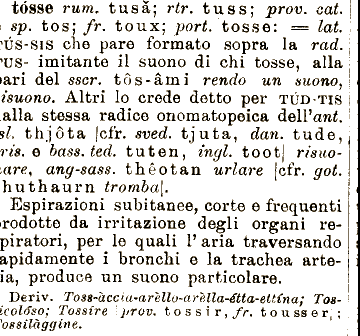 tósse rum. tusă; rtr. tuss; prov. cat.
e sp. tos; fr. toux; port. tosse: = lat.
TÚS-SIS che pare formato sopra la rad.
TUS- imitante il suono di chi tosse, alla
pari del sscr. tôs-âmi rendo un suono,
risuono. Altri lo crede detto per TÚD-TIS
dalla stessa radice onomatopeica dell'ant.
sl. thjôta [cfr. sved. tjuta, dan. tude,
fris. e bass. ted. tuten, ingl. toot] risuo-
nare, ang-sass. thêotan urlare [cfr. got.
thuthaurn tromba].
Espirazioni subitanee, corte e frequenti
prodotte da irritazione degli organi re-
spiratori, per le quali l'aria traversando
rapidamente i bronchi e la trachea arte-
ria, produce un suono particolare.
Deriv. Toss-àccia-arèllo-arèlla-étta-ettína; Tos-
sicolóso; Tossíre prov. tossir, fr. tousser,;
Tossilàggine.